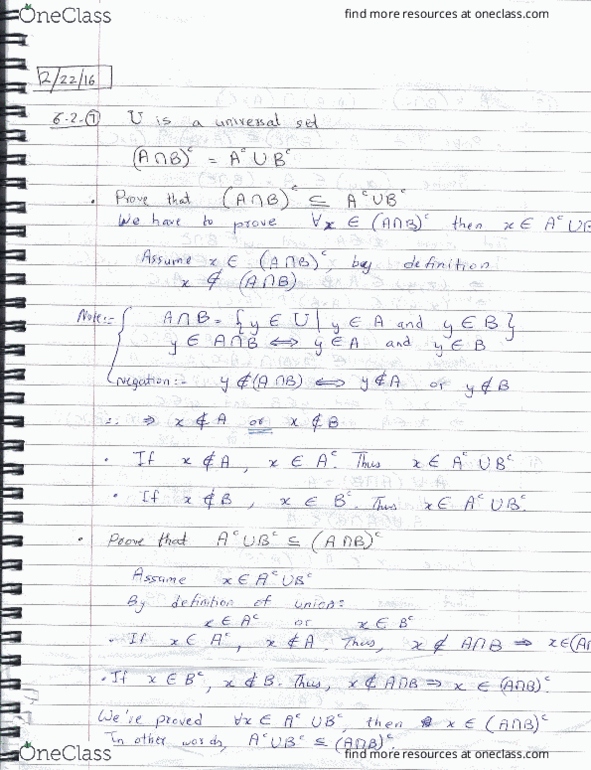 OneClass
find more resources at oneclass.com
2/22/16
6.2.⑦ U is a universal set
(A∩B)ᶜ = Aᶜ∪Bᶜ
• Prove that (A∩B)ᶜ ⊆ Aᶜ∪Bᶜ
We have to prove ∀x ∈ (A∩B)ᶜ then x∈ Aᶜ∪B
Assume x∈ (A∩B)ᶜ, by definition
x ∉ (A∩B)
Note:- A∩B = {y∈U | y∈A and y∈B}
y∈A∩B ⟺ y∈A and y∈B
negation:- y∉(A∩B) ⟺ y∉A or y∉B
∴ ⇒ x∉A or x∉B
• If x∉A, x∈Aᶜ. Thus x∈Aᶜ∪Bᶜ
• If x∉B, x∈Bᶜ. Thus x∈Aᶜ∪Bᶜ.
• Prove that Aᶜ∪Bᶜ ⊆ (A∩B)ᶜ
Assume x∈Aᶜ∪Bᶜ
By definition of union:
x∈Aᶜ or x∈Bᶜ
• If x∈Aᶜ, x∉A. Thus, x∉A∩B ⇒ x∈(A∩
• If x∈Bᶜ, x∉B. Thus, x∉A∩B ⇒ x∈(A∩B)ᶜ.
We've proved ∀x∈Aᶜ∪Bᶜ, then x∈(A∩B)ᶜ
In other words, Aᶜ∪Bᶜ ⊆ (A∩B)ᶜ.
OneClass
find more resources at oneclass.com